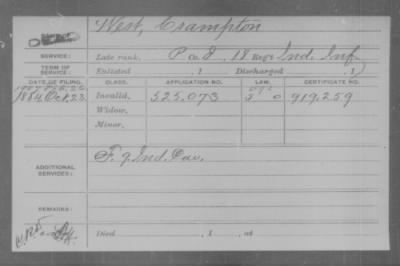 West, Crampton
SERVICE: Late rank, P Co. I, 18 Reg't Ind. Inf
TERM OF SERVICE: Enlisted , 1 Discharged , 1
DATE OF FILING. CLASS. APPLICATION NO. LAW. CERTIFICATE NO.
1884, Oct. 23. Invalid. 525.073 919.259
Widow.
Minor.
ADDITIONAL SERVICES: F. 9. Ind. Cav.
REMARKS:
Died , 1 , at